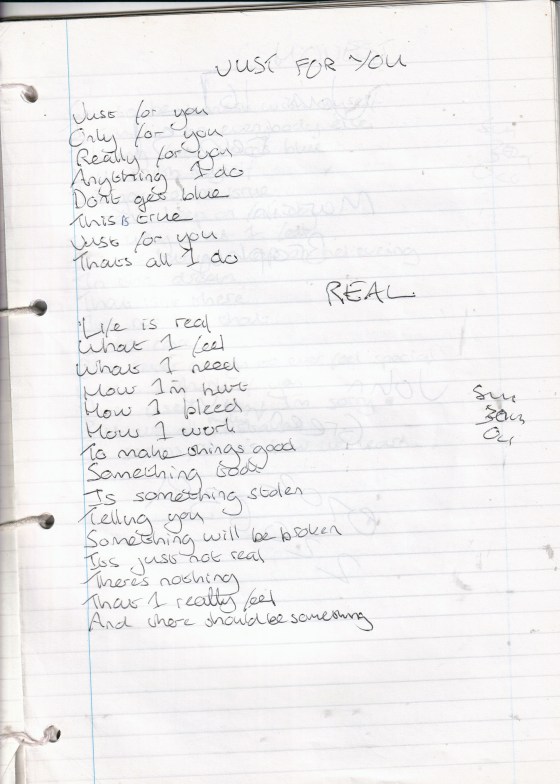 JUST FOR YOU
Just for you
Only for you
Really for you
Anything I do
Dont get blue
This is true
Just for you
Thats all I do
REAL
Life is real
What I feel
What I need
How Im hurt
How I bleed
How I work
To make things good
Something
Is something stolen
Telling you
Something will be broken
Its just not real
Theres nothing
That I really feel
And there should be something